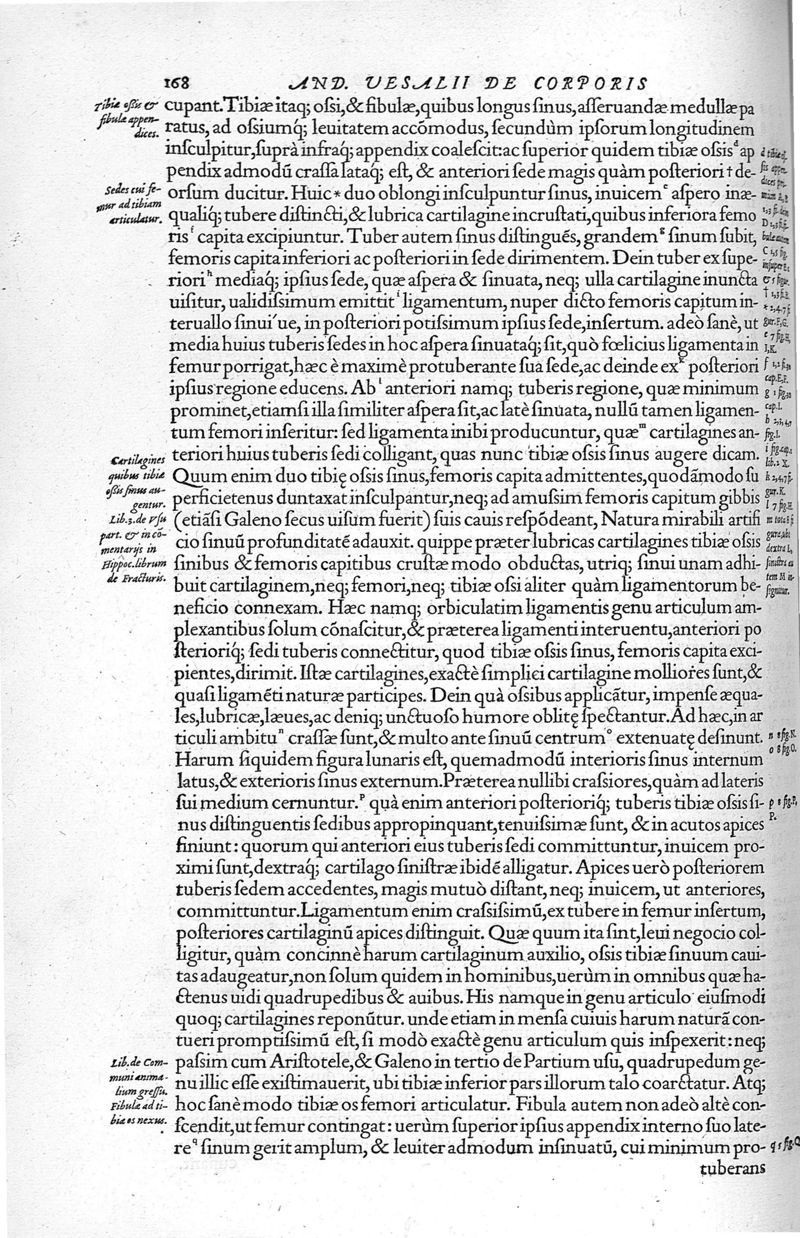 168 AND. VESALII DE CORPORIS
Tibiæ ossis &
fibulæ appen-
dices.
cupant. Tibiæ itaq; ossi, & fibulæ, quibus longus sinus, asseruandæ medullæ pa
ratus, ad ossiumq́; leuitatem accõmodus, secundùm ipsorum longitudinem
insculpitur, suprà infraq́; appendix coalescit: ac superior quidem tibiæ ossis ᵈ ap
pendix admodũ crassa lataq́; est, & anteriori sede magis quàm posteriori † de-
Sedes cui fe-
mur ad tibiam
articulatur.
orsum ducitur. Huic * duo oblongi insculpuntur sinus, inuicem ᵉ aspero inæ-
qualiq́; tubere distincti, & lubrica cartilagine incrustati, quibus inferiora femo
ris ᶠ capita excipiuntur. Tuber autem sinus distinguẽs, grandem ᵍ sinum subit,
femoris capita inferiori ac posteriori in sede dirimentem. Dein tuber ex supe-
riori ʰ mediaq́; ipsius sede, quæ aspera & sinuata, neq; ulla cartilagine inuncta
uisitur, ualidissimum emittit ⁱ ligamentum, nuper dicto femoris capitum in-
teruallo sinui´ue, in posteriori potissimum ipsius sede, insertum. adeò sanè, ut
media huius tuberis sedes in hoc aspera sinuataq́; sit, quò fœlicius ligamenta in
femur porrigat, hæc è maximè protuberante sua sede, ac deinde ex ᵏ posteriori
ipsius regione educens. Ab ˡ anteriori namq; tuberis regione, quæ minimum
prominet, etiamsi illa similiter aspera sit, ac latè sinuata, nullũ tamen ligamen-
tum femori inseritur: sed ligamenta inibi producuntur, quæ ᵐ cartilagines an-
teriori huius tuberis sedi colligant, quas nunc tibiæ ossis sinus augere dicam.
Cartilagines
quibus tibiæ
ossis sinus au-
gentur.
Lib.3. de Vsu
part. & in cõ-
mentarijs in
Hippoc. librum
de Fracturis.
Quum enim duo tibię ossis sinus, femoris capita admittentes, quodãmodo su
perficietenus duntaxat insculpantur, neq; ad amussim femoris capitum gibbis
(etiãsi Galeno secus uisum fuerit) suis cauis respõdeant, Natura mirabili artifi
cio sinuũ profunditatẽ adauxit. quippe præter lubricas cartilagines tibiæ ossis
sinibus & femoris capitibus crustæ modo obductas, utriq; sinui unam adhi-
buit cartilaginem, neq; femori, neq; tibiæ ossi aliter quàm ligamentorum be-
neficio connexam. Hæc namq; orbiculatim ligamentis genu articulum am-
plexantibus solum cõnascitur, & præterea ligamenti interuentu, anteriori po
sterioriq́; sedi tuberis connectitur, quod tibiæ ossis sinus, femoris capita exci-
pientes, dirimit. Istæ cartilagines, exactè simplici cartilagine molliores sunt, &
quasi ligamẽti naturæ participes. Dein quà ossibus applicãtur, impense æqua-
les, lubricæ, læues, ac deniq; unctuoso humore oblitę spectantur. Ad hæc, in ar
ticuli ambitu ⁿ crassæ sunt, & multo ante sinuũ centrum ᵒ extenuatę desinunt.
n 8 fig. N.
o 8 fig. O.
Harum siquidem figura lunaris est, quemadmodũ interioris sinus internum
latus, & exterioris sinus externum. Præterea nullibi crassiores, quàm ad lateris
sui medium cernuntur. ᵖ quà enim anteriori posterioriq́; tuberis tibiæ ossis si-
p 8 fig. P,
P.
nus distinguentis sedibus appropinquant, tenuissimæ sunt, & in acutos apices
finiunt: quorum qui anteriori eius tuberis sedi committuntur, inuicem pro-
ximi sunt, dextraq́; cartilago sinistræ ibidẽ alligatur. Apices uerò posteriorem
tuberis sedem accedentes, magis mutuò distant, neq; inuicem, ut anteriores,
committuntur. Ligamentum enim crassissimũ, ex tubere in femur insertum,
posteriores cartilaginũ apices distinguit. Quæ quum ita sint, leui negocio col-
ligitur, quàm concinnè harum cartilaginum auxilio, ossis tibiæ sinuum caui-
tas adaugeatur, non solum quidem in hominibus, uerùm in omnibus quæ ha-
ctenus uidi quadrupedibus & auibus. His namque in genu articulo eiusmodi
quoq; cartilagines reponũtur. unde etiam in mensa cuiuis harum naturã con-
tueri promptissimũ est, si modò exactè genu articulum quis inspexerit: neq;
Lib. de Com-
muni anima-
lium gressu.
passim cum Aristotele, & Galeno in tertio de Partium usu, quadrupedum ge-
nu illic esse existimauerit, ubi tibiæ inferior pars illorum talo coarctatur. Atq;
Fibulæ ad ti-
biæ os nexus.
hoc sanè modo tibiæ os femori articulatur. Fibula autem non adeò altè con-
scendit, ut femur contingat: uerùm superior ipsius appendix interno suo late-
re ᑫ sinum gerit amplum, & leuiter admodum insinuatũ, cui minimum pro-
q 5 fig. Q
tuberans